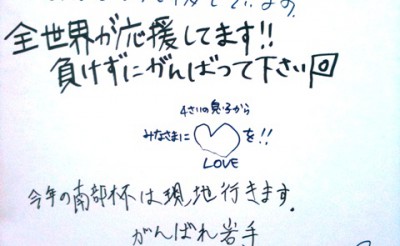 全世界が応援してます!!
負けずにがんばって下さい回
4さいの息子から
みなさまに♡を!!
LOVE
今年の南部杯は現地行きます.
がんばれ岩手